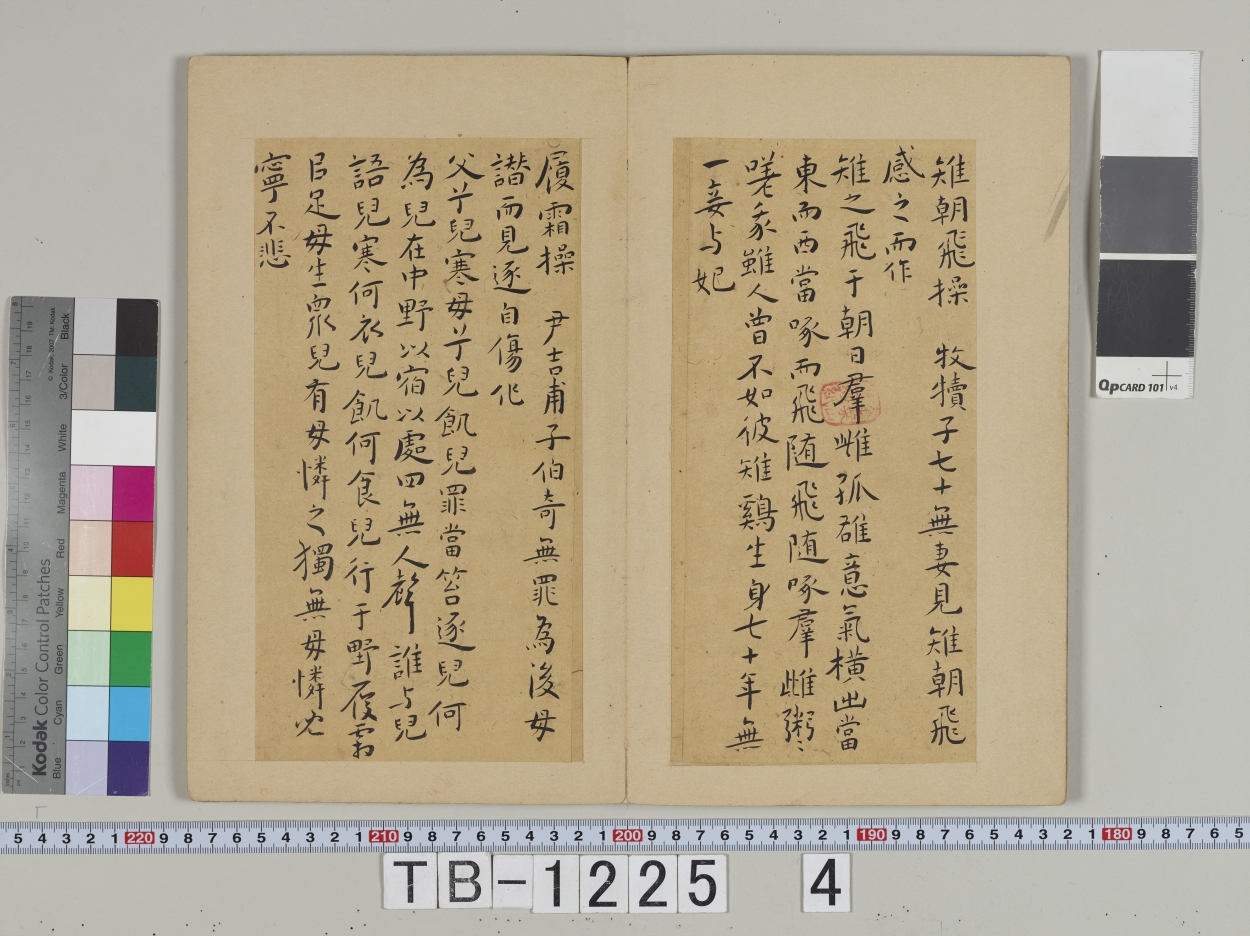 雉朝飛操 牧犢子七十無妻見雉朝飛
感之而作
雉之飛于朝日羣雌孤雄意氣橫出當
東而西當啄而飛随飛随啄羣雌粥〻
嗟我雖人曾不如彼雉鷄生身七十年無
一妾与妃
履霜操 尹吉甫子伯奇無罪為後母
譖而見逐自傷作
父兮兒寒母兮兒飢兒罪當笞逐兒何
為兒在中野以宿以處四無人聲誰与兒
語兒寒何衣兒飢何食兒行于野履霜
以足母生衆兒有母憐之獨無母憐兒
寧不悲
QPCARD 101 v4
Kodak Color Control Patches
© Kodak, 2007 TM: Kodak
Blue Cyan Green Yellow Red Magenta White 3/Color Black
5 4 3 2 1 220 9 8 7 6 5 4 3 2 1 210 9 8 7 6 5 4 3 2 1 200 9 8 7 6 5 4 3 2 1 190 9 8 7 6 5 4 3 2 1 180 9 8 7 6 5
TB-1225 4